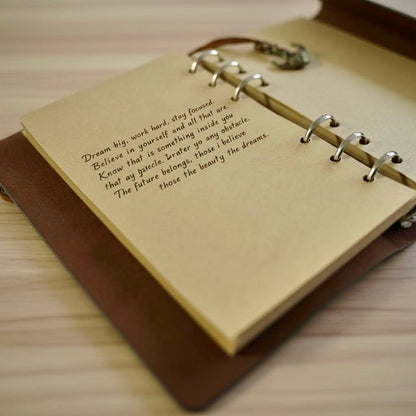 Dream big, work hard, stay focused.
Believe in yourself and all that are.
Know that is something inside you
that ay guecle. Izrater yo any obstacle.
The future belongs, those i believe
those the beauty the dreams.